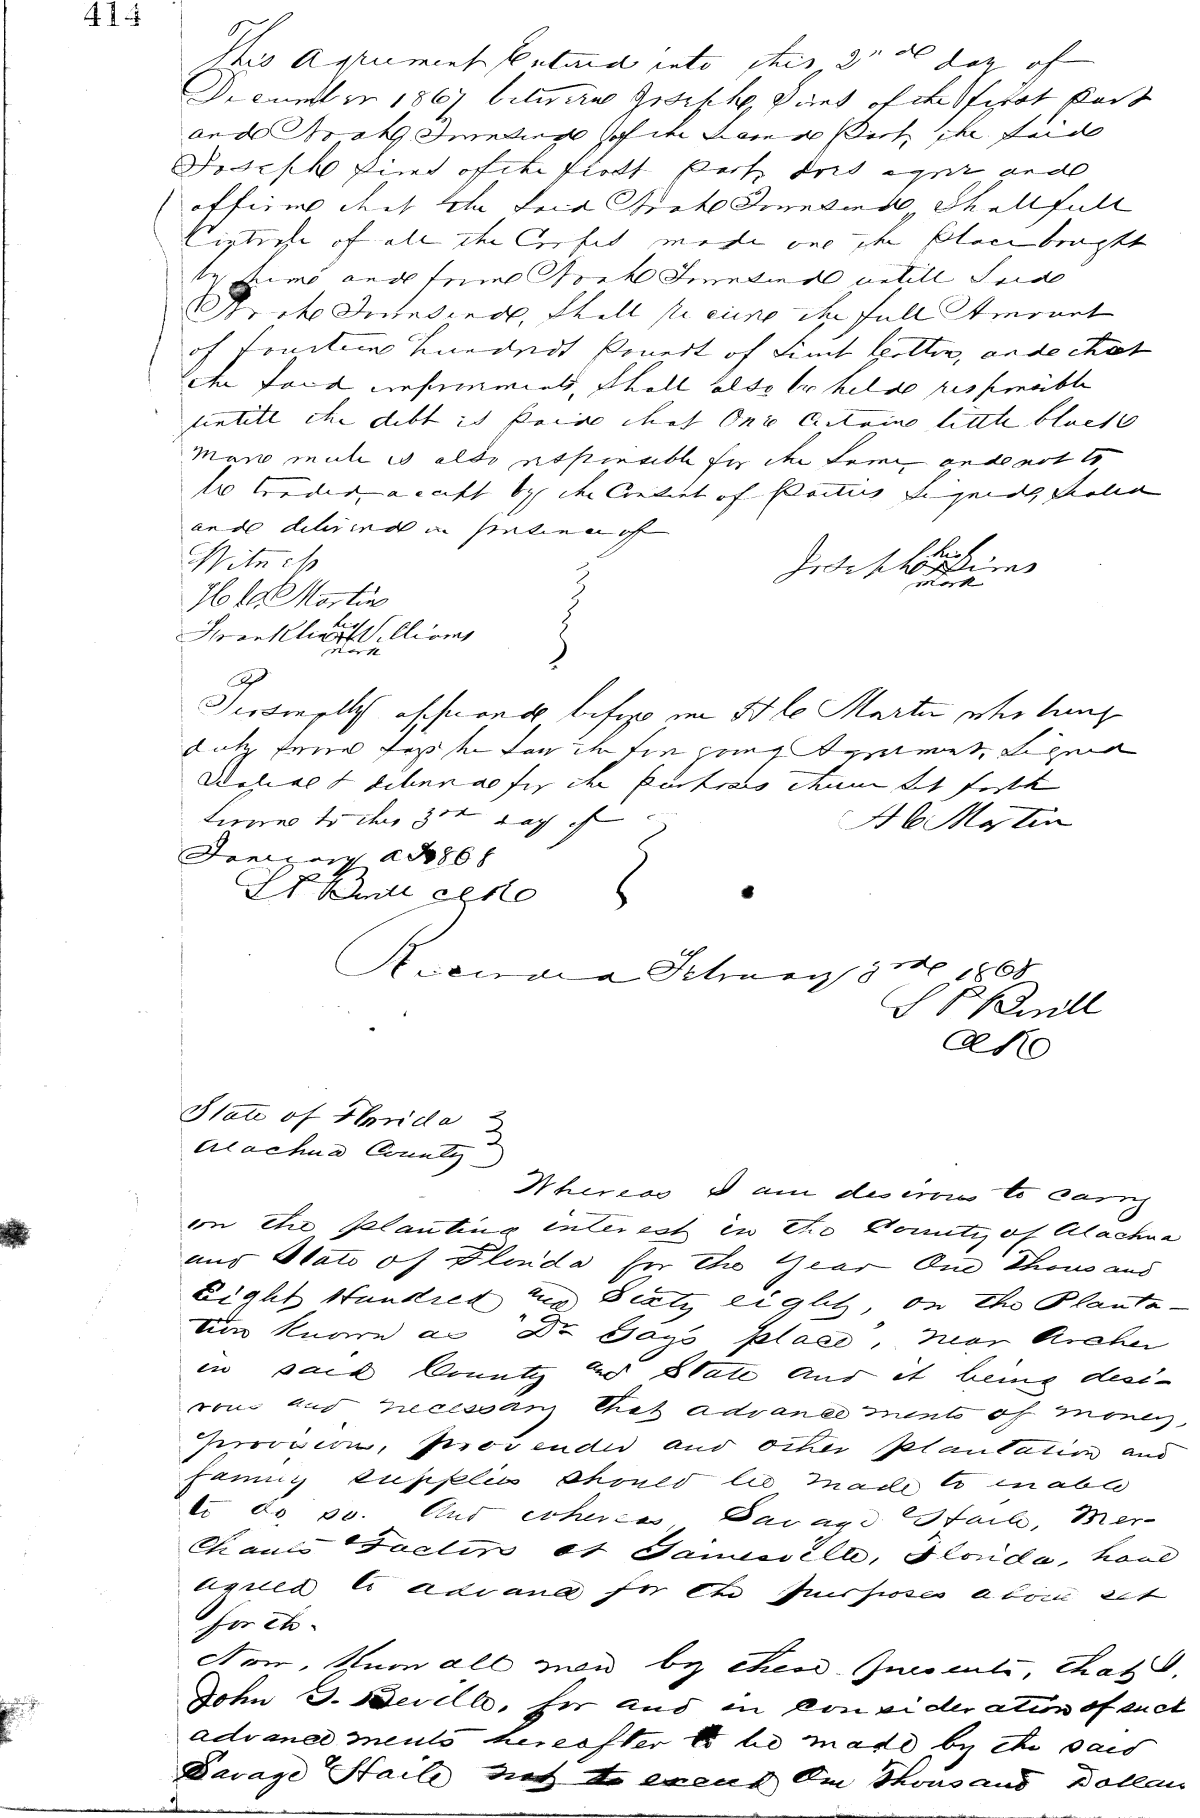 414
This Agreement Entered into this 2nd day of
December 1867 between Joseph Sims of the first Part
and Noah Townsend of the Second Part, the Said
Joseph Sims of the first Part, does agree and
affirm that the Said Noah Townsend, Shall full
Controle of all the Corps made one the Place bought
by him and from Noah Townsend untill Said
Noah Townsend, Shall recieve the full Amount
of fourteen hundred Pounds of Lint Cotton, and that
the Said improvements, Shall also be held responsible
untill the debt is Paid that One Certain little black
Mare mule is also responsible for the Same, and not to
be traded, accept by the Consent of Parties Signed, Sealed
and deliverd in presence of
Witness
Joseph his x mark Sims
H C Martin
Franklin his x mark Williams
Personally appeared before me H C Martin who being
duly sworn says he saw the for going Agreement, Signed
Sealed & deliverd for the Purposes therein Set forth
Sworn to this 3rd day of
H C Martin
January AD 1868
Clk
Recorded February 3rd 1868
Clk
State of Florida
Alachua County
Whereas I am desirous to carry
on the planting interest in the County of Alachua
and State of Florida for the Year One Thousand
Eight Hundred and Sixty eight, on the Planta-
tion known as "Dr Gays place", near Archer
in said County and State and it being desi-
rous and necessary that advancements of money,
provision, provender and other plantation and
family supplies should be made to enable
to do so. And whereas Savage & Haile, Mer-
chants & Factors at Gainesville, Florida, have
agreed to advance for the purposes above set
forth.
Now, Know all men by these presents, that I,
John G. Beville, for and in consideration of such
advancements hereafter to be made by the said
Savage & Haile not to exceed One Thousand Dollars